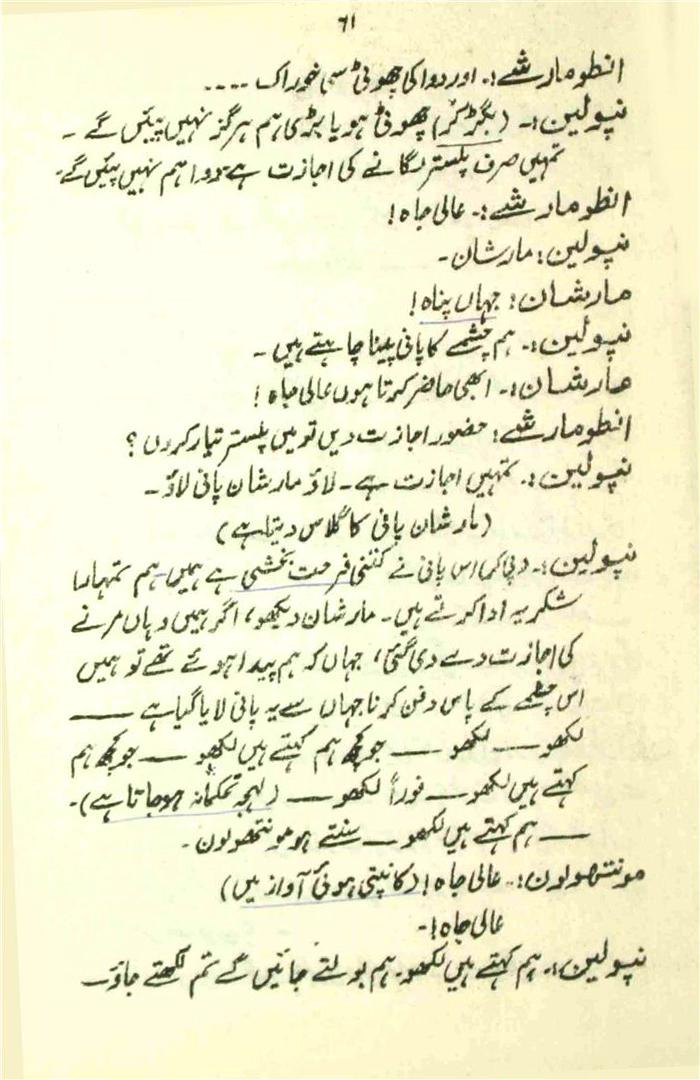 ۶۱
انطومارشے:۔ اور دوا کی چھوٹی سی خوراک ۔۔۔۔
نپولین:۔ (بگڑ کر) چھوٹی ہو یا بڑی ہم ہرگز نہیں پئیں گے ۔
تمہیں صرف پلستر لگانے کی اجازت ہے۔ دوا ہم نہیں پئیں گے۔
انطومارشے:۔ عالی جاہ!
نپولین: مارشان۔
مارشان: جہاں پناہ!
نپولین:۔ ہم چشمے کا پانی پینا چاہتے ہیں ۔
مارشان:۔ ابھی حاضر کرتا ہوں عالی جاہ !
انطومارشے: حضور اجازت دیں تو میں پلستر تیار کروں ؟
نپولین:۔ تمہیں اجازت ہے۔ لاؤ مارشان پانی لاؤ ۔
(مارشان پانی کا گلاس دیتا ہے)
نپولین:۔ (پی کر) اس پانی نے کتنی فرحت بخشی ہے ہمیں۔ ہم تمہارا
شکریہ ادا کرتے ہیں۔ مارشان دیکھو، اگر ہمیں وہاں مرنے
کی اجازت دے دی گئی، جہاں کہ ہم پیدا ہوئے تھے تو ہمیں
اس چشمے کے پاس دفن کرنا جہاں سے یہ پانی لایا گیا ہے ——
لکھو —— لکھو —— جو کچھ ہم کہتے ہیں لکھو —— جو کچھ ہم
کہتے ہیں لکھو —— فوراً لکھو —— (لہجہ تحکمانہ ہو جاتا ہے)۔
—— ہم کہتے ہیں لکھو —— سنتے ہو مونتھولون ۔
مونتھولون:۔ عالی جاہ! (کانپتی ہوئی آواز میں)
عالی جاہ!۔
نپولین:۔ ہم کہتے ہیں لکھو۔ ہم بولتے جائیں گے تم لکھتے جاؤ——